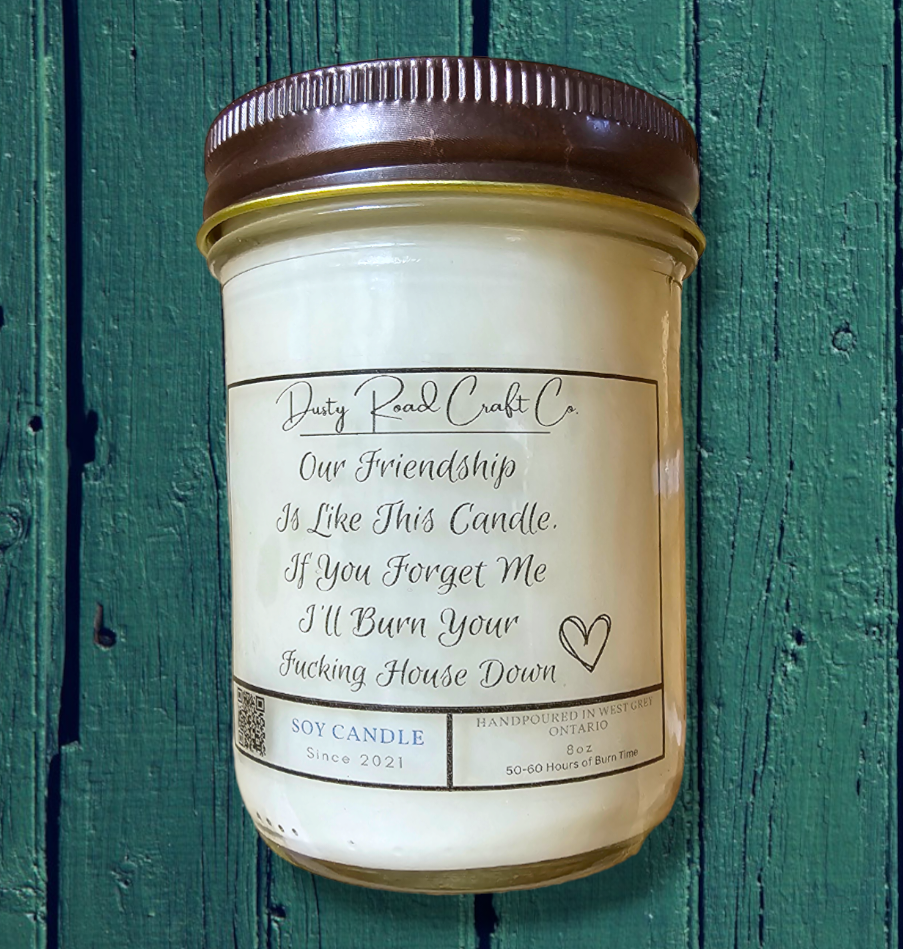 Dusty Road Craft Co.
Our Friendship
Is Like This Candle.
If You Forget Me
I'll Burn Your
Fucking House Down
SOY CANDLE
Since 2021
HANDPOURED IN WEST GREY
ONTARIO
8oz
50-60 Hours of Burn Time